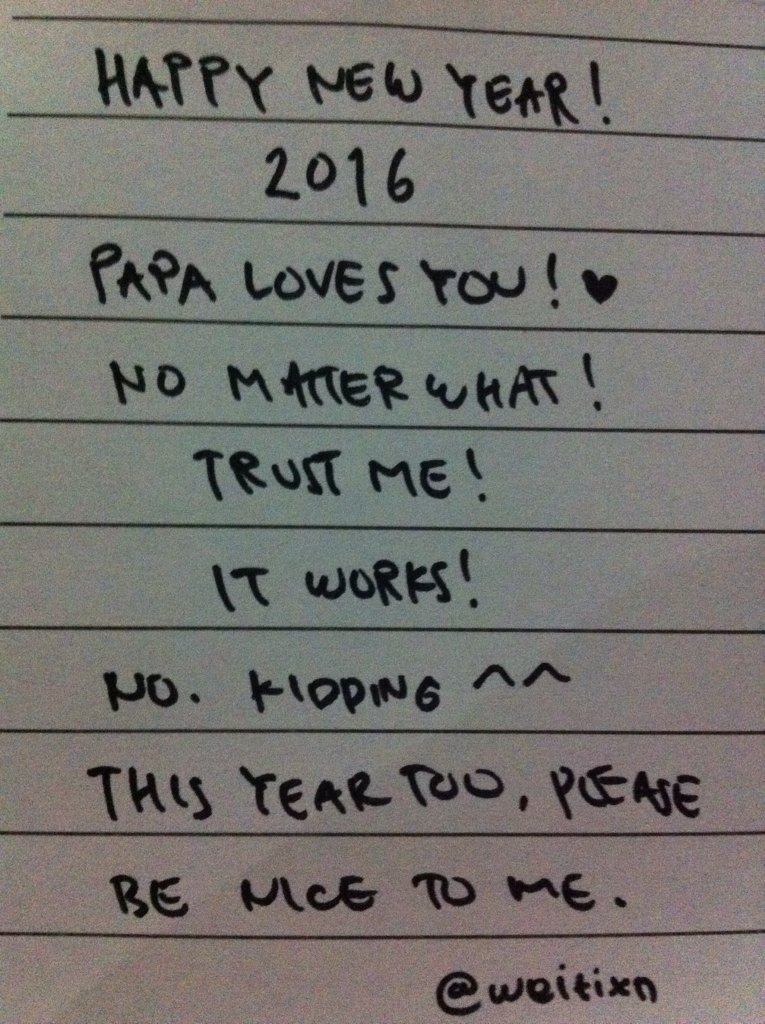 HAPPY NEW YEAR!
2016
PAPA LOVES YOU! ♥
NO MATTER WHAT!
TRUST ME!
IT WORKS!
NO. KIDDING ^^
THIS YEAR TOO, PLEASE
BE NICE TO ME.
@weitixn